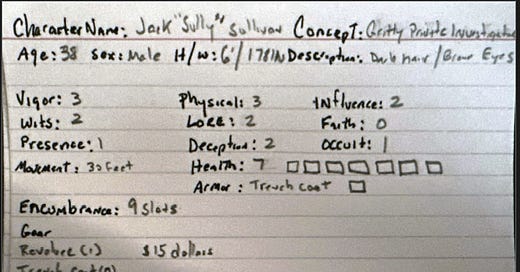 Character Name: Jack "Sully" Sullivan Concept: Gritty Private Investigator
Age: 38 Sex: Male H/W: 6'/178lb Description: Dark hair/Brown Eyes
Vigor: 3 Physical: 3 Influence: 2
Wits: 2 Lore: 2 Faith: 0
Presence: 1 Deception: 2 Occult: 1
Movement: 30 feet Health: 7
Armor: Trench coat
Encumbrance: 9 slots
Gear
(1) $15 dollars
Trench coat